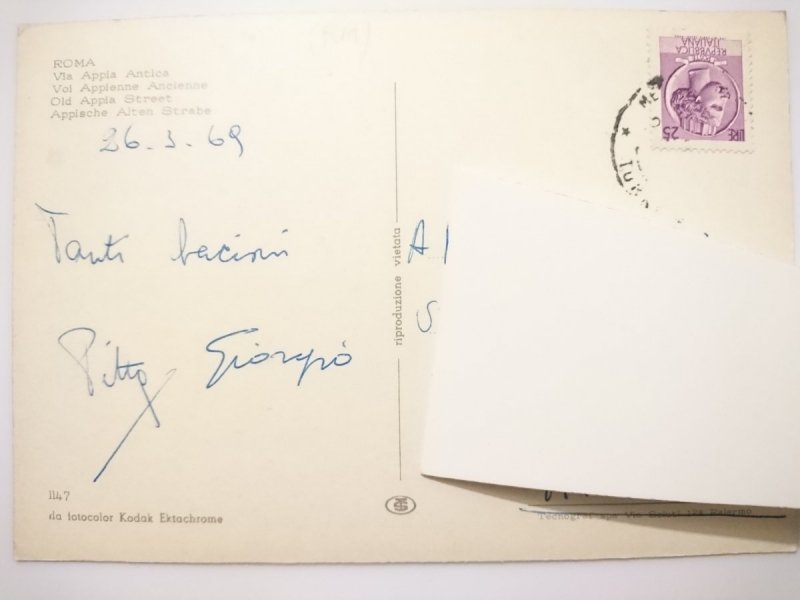 ROMA
Via Appia Antica
Voi Appienne Ancienne
Old Appia Street
Appische Alten Strabe
26.3.69
Tanti bacioni
Pitto Giorgio
riproduzione vietata
REPVBBLICA
ITALIANA
LIRE 25
1147
da fotocolor Kodak Ektachrome
Palermo